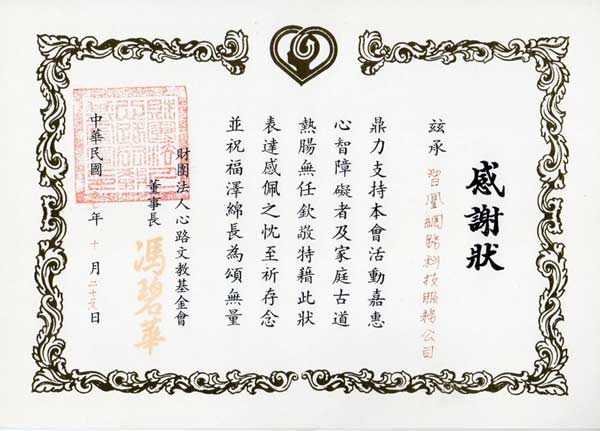 感謝狀
玆承 智凰網路科技服務公司
鼎力支持本會活動嘉惠
心智障礙者及家庭古道
熱腸無任欽敬特藉此狀
表達感佩之忱至祈存念
並祝福澤綿長為頌無量
財團法人心路文教基金會
董事長 馮碧華
中華民國 年 十 月 二十六 日